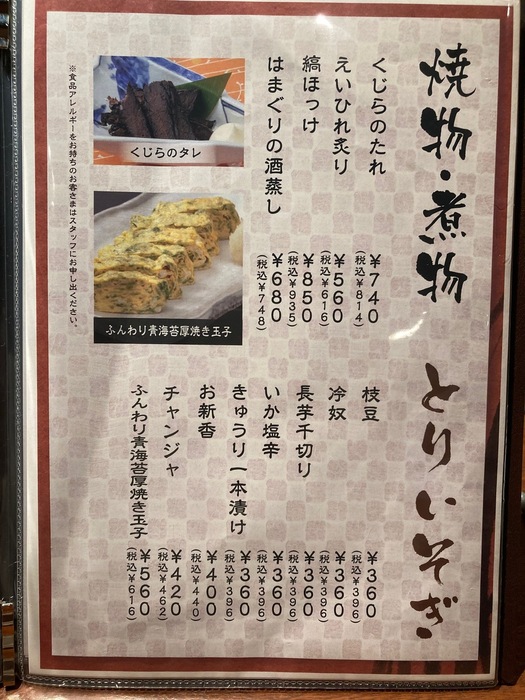 焼物・煮物
くじらのたれ ¥740
(税込¥814)
えいひれ炙り ¥560
(税込¥616)
縞ほっけ ¥850
(税込¥935)
はまぐりの酒蒸し ¥680
(税込¥748)
くじらのタレ
ふんわり青海苔厚焼き玉子
※食品アレルギーをお持ちのお客さまはスタッフにお申し出ください。
とりいそぎ
枝豆 ¥360
(税込¥396)
冷奴 ¥360
(税込¥396)
長芋千切り ¥360
(税込¥396)
いか塩辛 ¥360
(税込¥396)
きゅうり一本漬け ¥360
(税込¥396)
お新香 ¥400
(税込¥440)
チャンジャ ¥420
(税込¥462)
ふんわり青海苔厚焼き玉子 ¥560
(税込¥616)